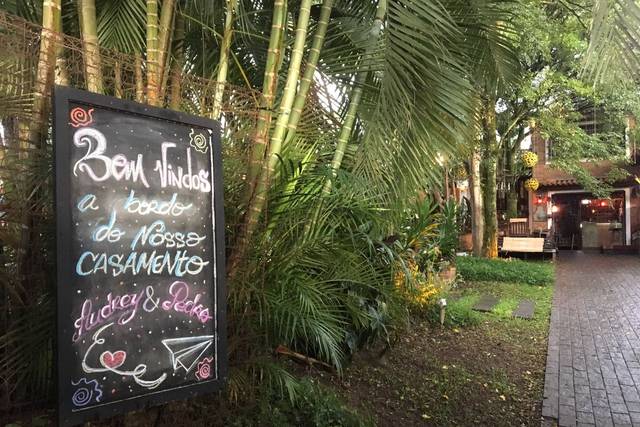 Bem Vindos
a bordo
do Nosso
CASAMENTO
Audrey & Pedro